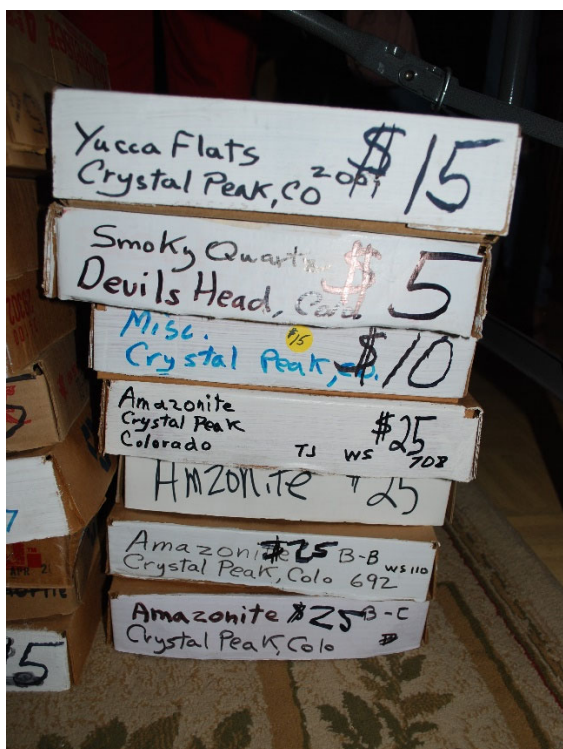 Yucca Flats $15
Crystal Peak, CO
Smoky Quartz $5
Devils Head, Colo
Misc. $15 $10
Crystal Peak, Co.
Amazonite
Crystal Peak $25
Colorado TJ WS 708
Amzonite $25
Amazonite $25 B-B WS 110
Crystal Peak, Colo 692
Amazonite $25 B-C
Crystal Peak, Colo
5